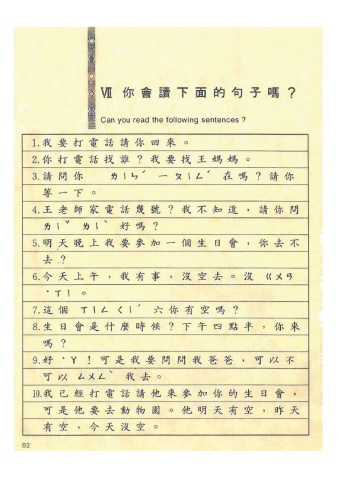 Ⅶ 你會讀下面的句子嗎？
Can you read the following sentences？
1.我要打電話請你回來。
2.你打電話找誰？我要找王媽媽。
3.請問你 ㄉㄧㄣˊ ㄧㄆㄧㄥˊ 在嗎？請你
等一下。
4.王老師家電話幾號？我不知道，請你問
ㄉㄧˇ ㄉㄧˋ 好嗎？
5.明天晚上我要參加一個生日會，你去不
去？
6.今天上午，我有事，沒空去。沒 ㄍㄨㄢ
˙ㄒㄧ。
7.這個 ㄒㄧㄥ ㄑㄧˊ 六你有空嗎？
8.生日會是什麼時候？下午四點半，你來
嗎？
9.好˙ㄚ！可是我要問問我爸爸，可以不
可以 ㄙㄨㄥˋ 我去。
10.我已經打電話請他來參加你的生日會，
可是他要去動物園。他明天有空，昨天
有空，今天沒空。
82